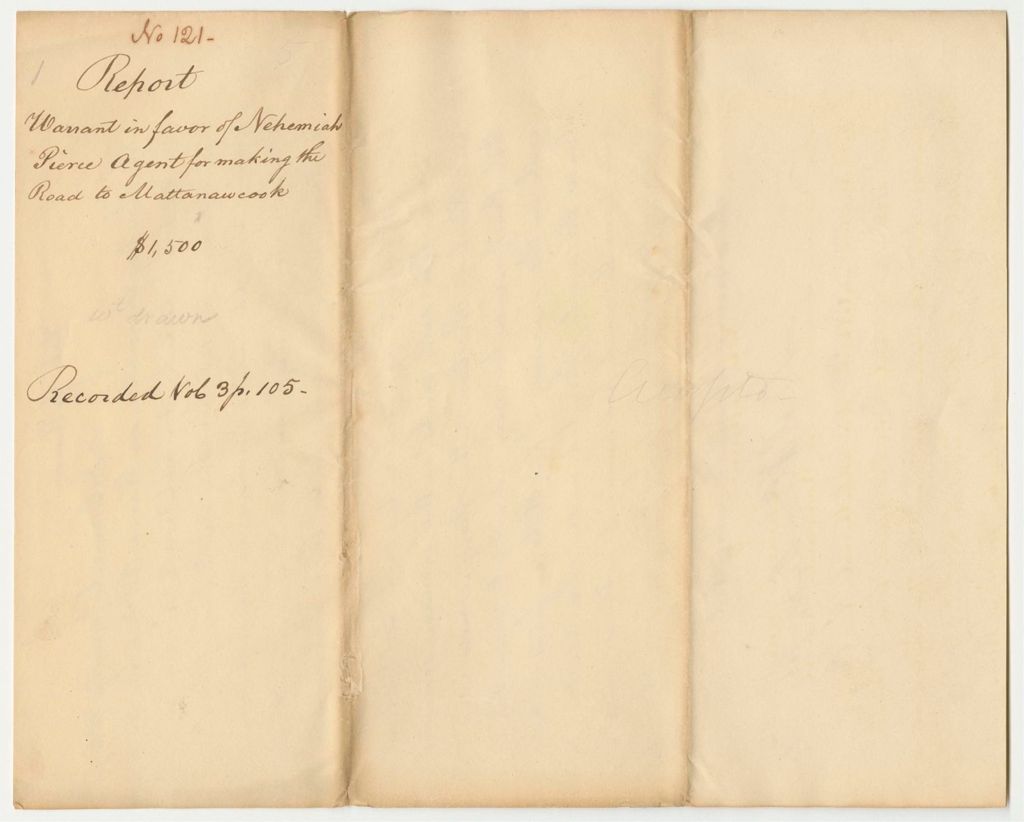 No 121-
Report
Warrant in favor of Nehemiah
Pierce Agent for making the
Road to Mattanawcook
$1,500
wt drawn
Recorded Vol 3 p. 105-